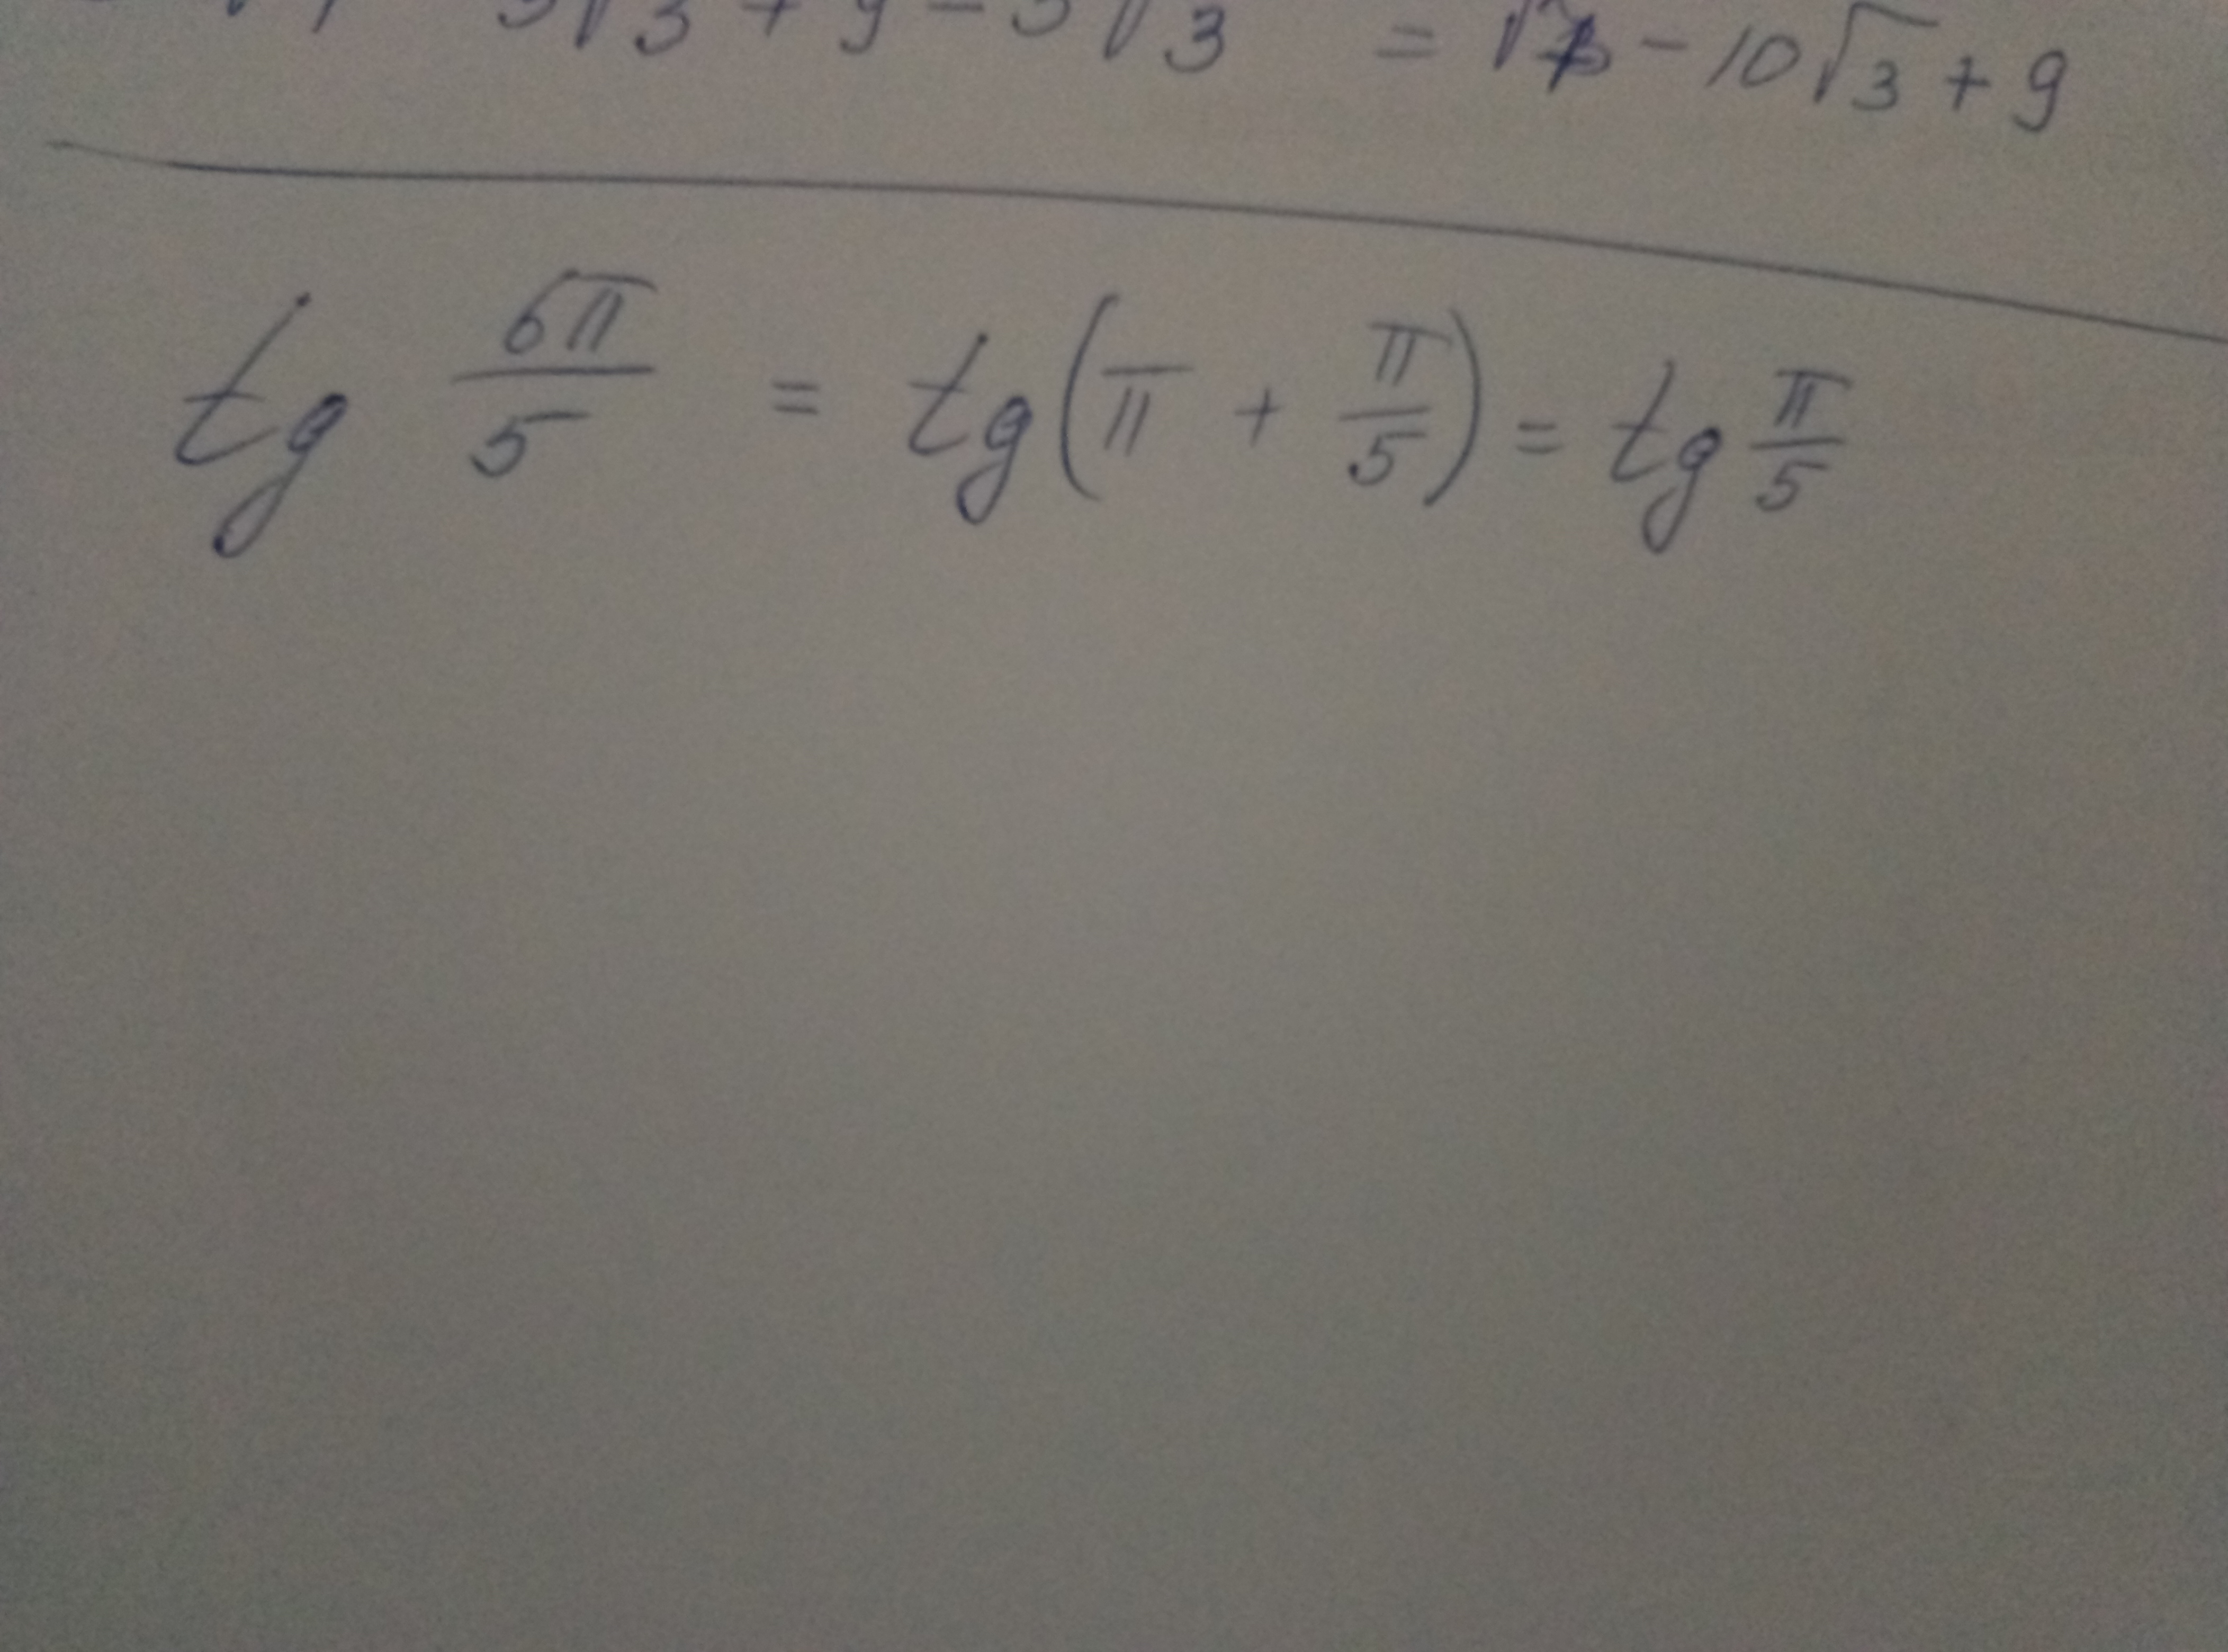 3√3 + 9 - 5√3 = - 10√3 + 9
tg 6π/5 = tg(π + π/5) = tg π/5